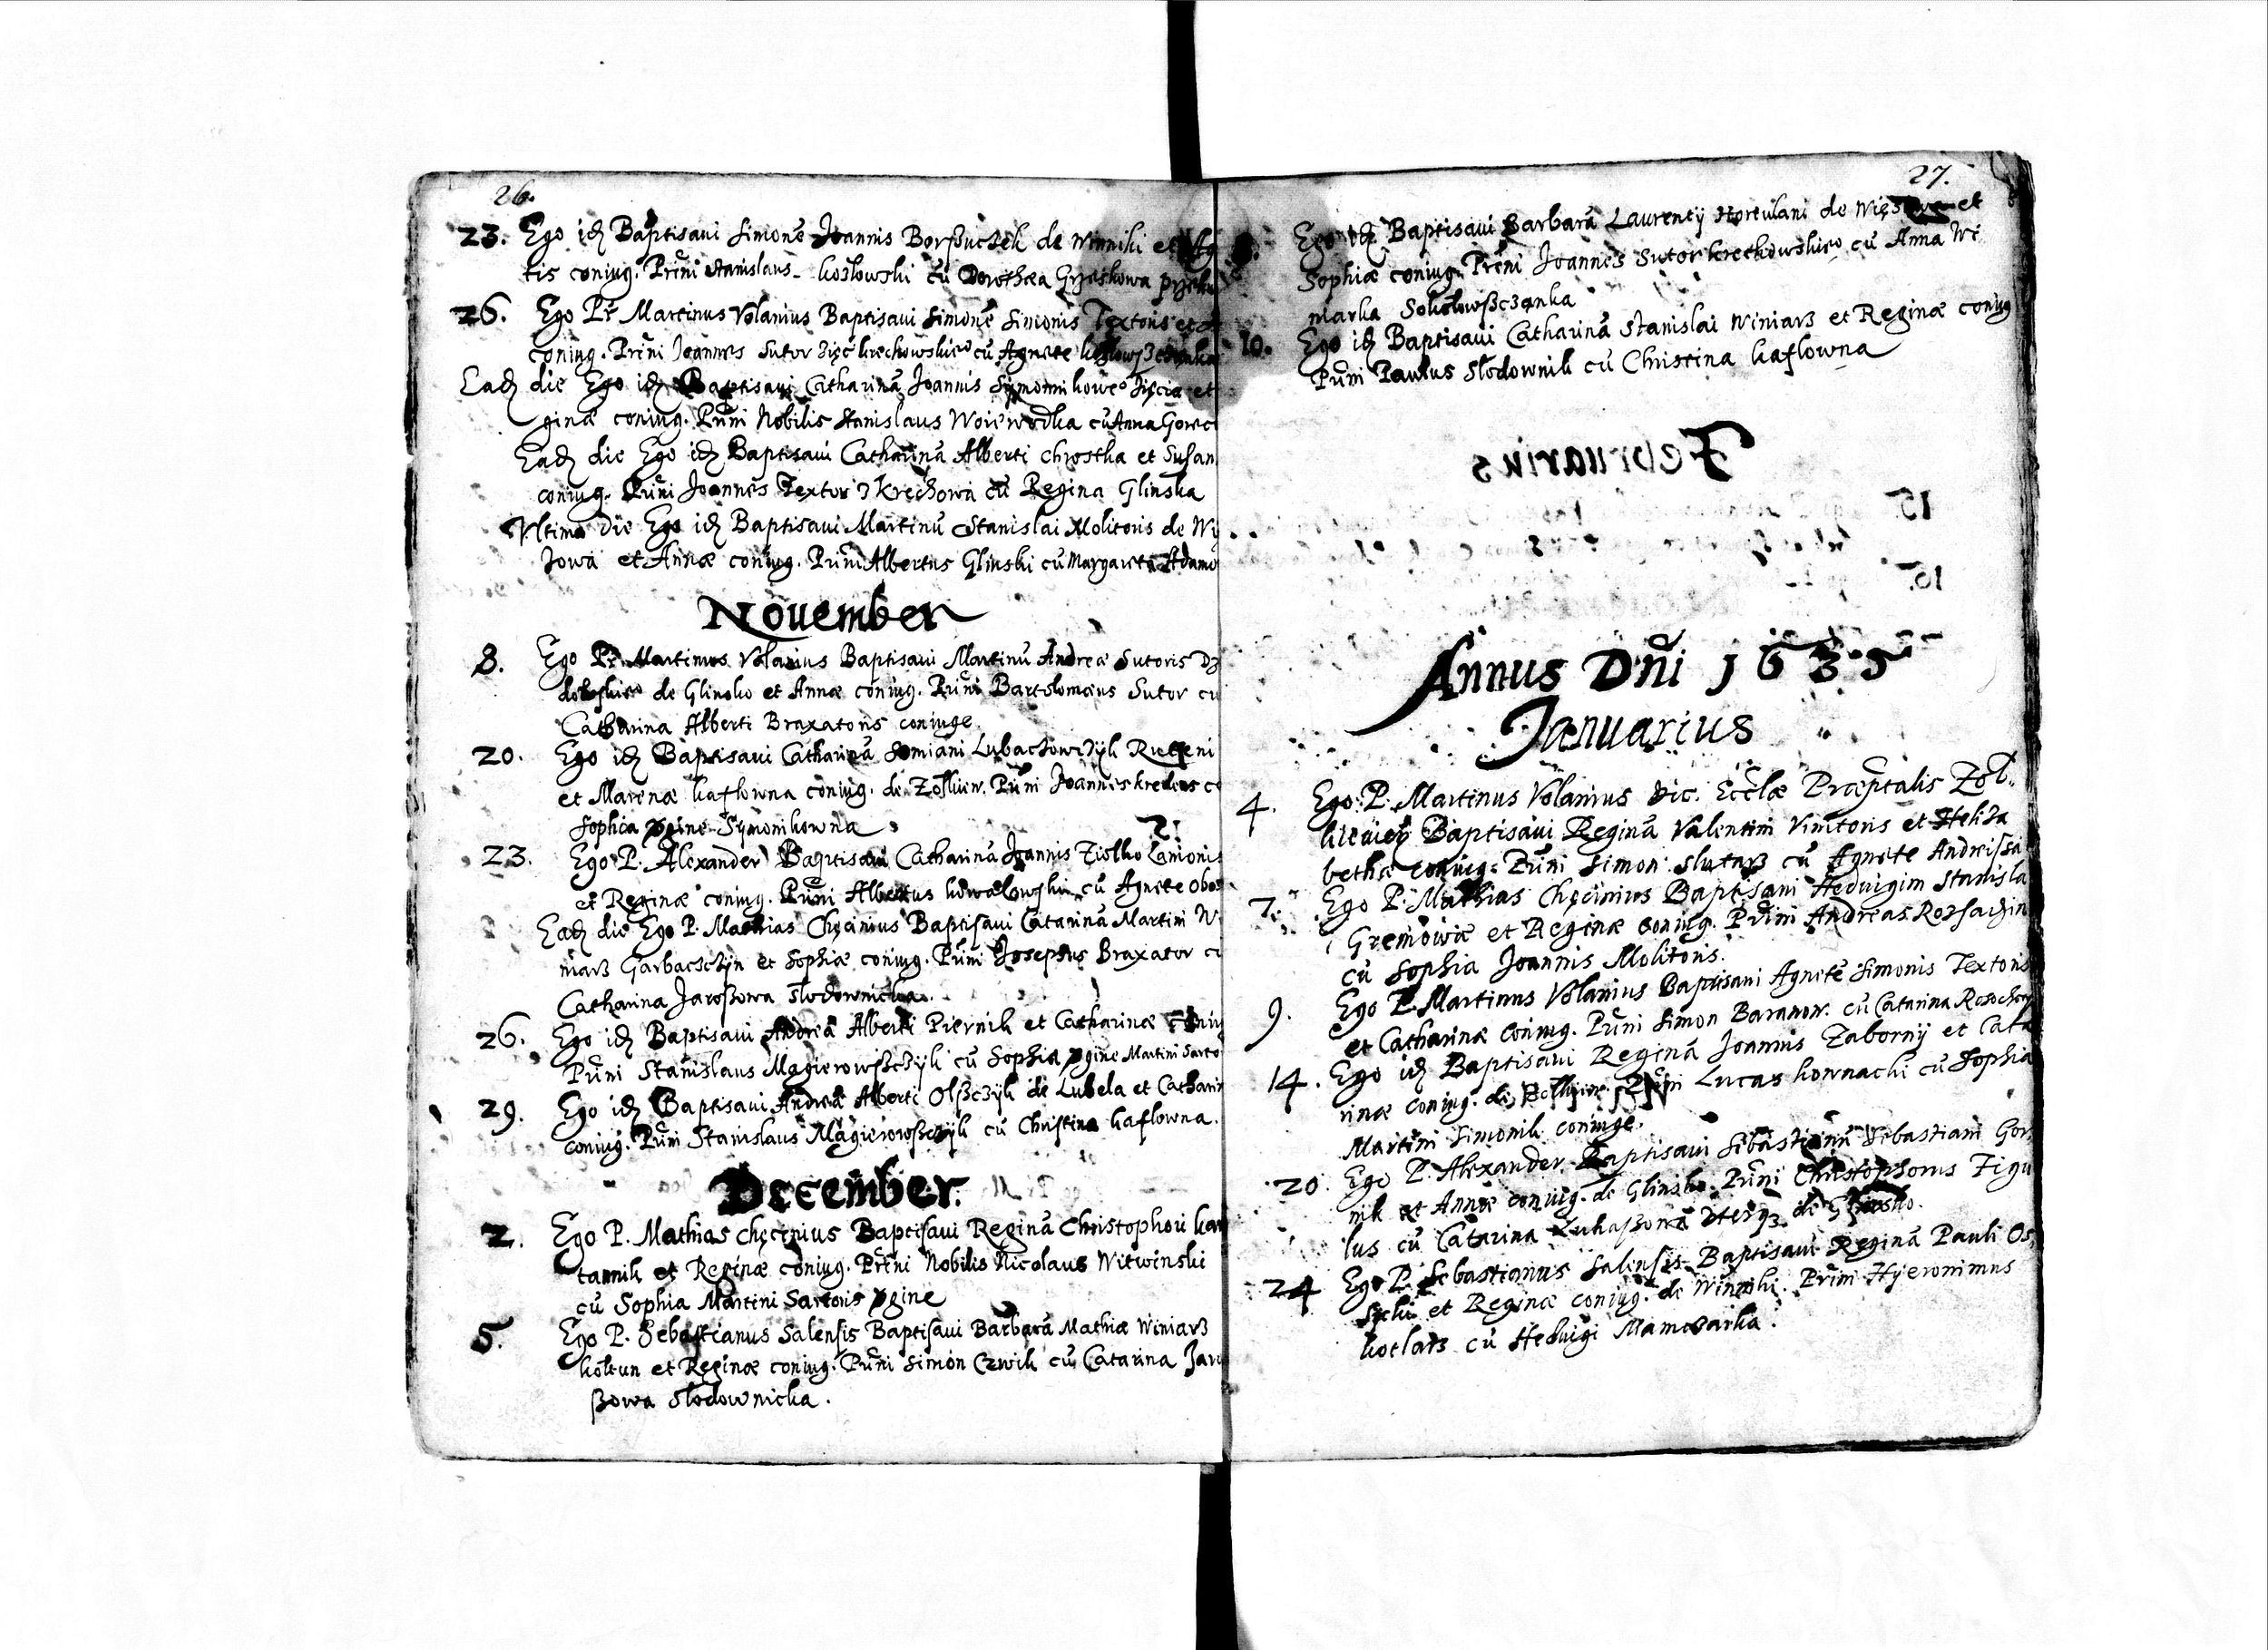 26.
23. Ego idē Baptisaui Simonē Joannis Borßuczek de Winniki et
tis coniug. Prīni Stanislaus kozłowski cū Dorothea Grzeskowa
26. Ego Pr Martinus Volanius Baptisaui Simonē Simonis Textoris et
coniug. Prīni Joannes Sutor zięć krechowskieo cū Agnete
Eadē die Ego idē Baptisaui Catharinā Joannis Symonnikoweo zięcia et
ginæ coniug. Pūni Nobilis Stanislaus Woiewodka cū Anna Gorec
Eadē die Ego idē Baptisaui Catharinā Alberti Chrostka et Susan
coniug. Pūni Joannes Textor z Krechowa cū Regina Glinska
Vltima die Ego idē Baptisaui Martinū Stanislai Molitoris de Wi
zowa et Annæ coniug. Pūni Albertus Glinski cū Margareta Adamo
November
8. Ego Pr Martinus Volanius Baptisaui Martinū Andreæ Sutoris Dz
de Glinsko et Annæ coniug. Pūni Bartolomæus Sutor cu
Catharina Alberti Braxatoris coniuge.
20. Ego idē Baptisaui Catharinā Lubaczowczyk Ruteni
et Marenæ kaflowna coniug. de Zolkiew. Pūni Joannes kredens
Sophia Symonikowna
23. Ego P. Alexander Baptisaui Catharinā Joannis Ziołko Lanionis
et Reginæ coniug. Pūni Albertus kowalowski cū Agnete
Eadē die Ego P. Mathias Chęcinius Baptisaui Catarinā Martini W
niarß Garbaczczyn et Sophiæ coniug. Pūni Josephus Braxator cu
Catharina Jaroßowa Słodowniczka.
26. Ego idē Baptisaui Andreā Alberti Piernik et Catharinæ coniug
Pūni Stanislaus Magierowßczyk cū Sophia Vgine Martini Sarto
29. Ego idē Baptisaui Andreā Alberti Olßczyk de Lubela et Catharin
coniug. Pūni Stanislaus Magierowßczyk cū Christina kaflowna.
December.
2. Ego P. Mathias Chęcinius Baptisaui Reginā Christophori
tannik et Reginæ coniug. Prīni Nobilis Nicolaus Witwinski
cū Sophia Martini Sartoris Vgine
5. Ego P. Sebastianus Salensis Baptisaui Barbarā Mathiæ Winiarß
kołtun et Reginæ coniug. Pūni Simon Czwik cū Catarina Jaro
ßowa Słodownicka.
27.
Ego idē Baptisaui Barbarā Laurentij Hortulani de et
Sophiæ coniug. Prīni Joannes Sutor krechowskieo cū Anna Wi
marka Sokołowßczanka
10. Ego idē Baptisaui Catharinā Stanislai Winiarß et Reginæ coniug
Pūni Paulus Słodownik cū Christina kaflowna
Februarius
15.
16.
Annus Dñi 1635
Januarius
4. Ego P. Martinus Volanius Vic. Eccłæ Præptalis Zol
kieuień Baptisaui Reginā Valentini Vinitoris et Heliza
bethæ coniug. Pūni Simon slutarß cū Agnete
7. Ego P. Mathias Chęcinius Baptisaui Heduigim Stanisla
Gremowæ et Reginæ coniug. Prīni Andreas
cū Sophia Joannis Molitoris.
9. Ego P. Martinus Volanius Baptisaui Agnetē Simonis Textoris
et Catharinæ coniug. Pūni Simon Baranow. cū Catarina
14. Ego idē Baptisaui Reginā Joannis Zabornÿ et Cata
rinæ coniug. de Lucas kownacki cū Sophia
Martini Simonik coniuge.
20. Ego P. Alexander Baptisaui Sebastianū Sebastiani Gor
nik et Annæ coniug. de Glinsko. Pūni Christophorus Figu
lus cū Catarina Lukaßowa de Glinsko.
24 Ego P. Sebastianus Salensis Baptisaui Reginā Pauli Os
et Reginæ coniug. de Winniki. Prīni Hyeronimus
kotlarß cū Heduigi Mamczarka.